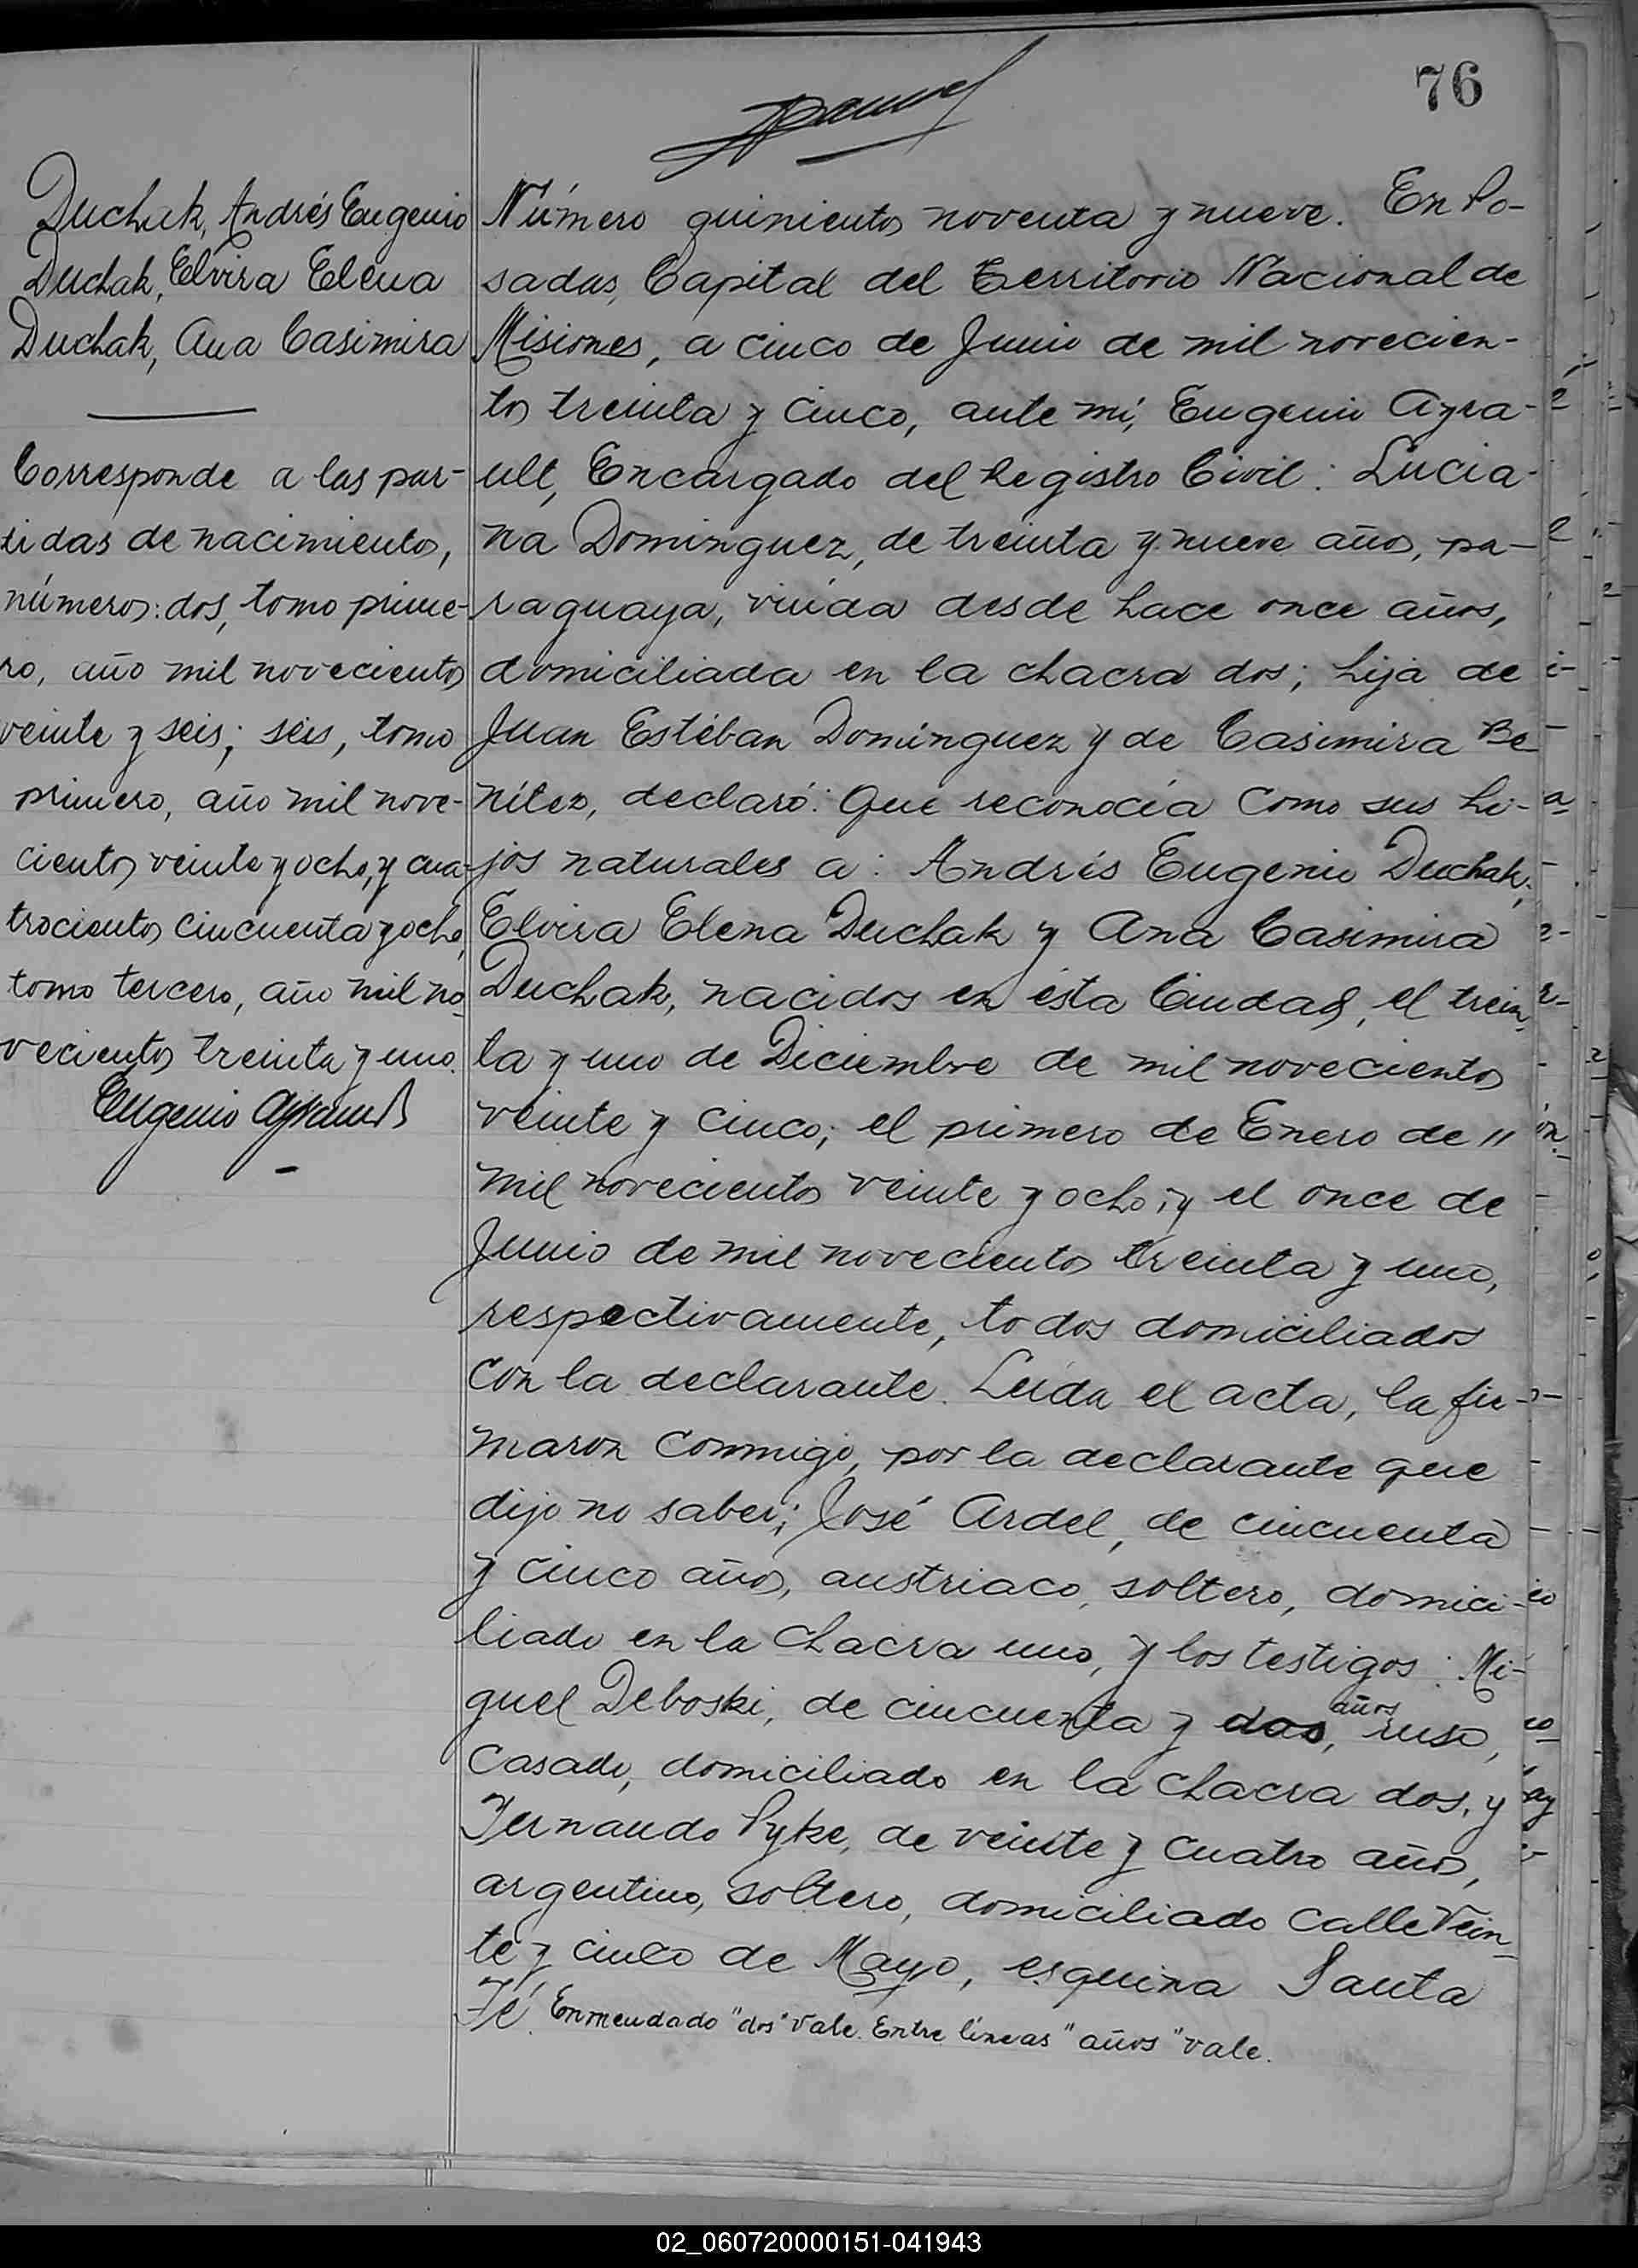 76
Duchak, Andrés Eugenio
Duchak, Elvira Elena
Duchak, Ana Casimira
Corresponde a las par-
tidas de nacimientos,
números: dos, tomo prime-
ro, año mil novecientos
veinte y seis; seis, tomo
primero, año mil nove-
cientos veinte y ocho, y cua-
trocientos cincuenta y ocho,
tomo tercero, año mil no-
vecientos treinta y uno.
Eugenio Ayrault
Número quinientos noventa y nueve. En Po-
sadas, Capital del Territorio Nacional de
Misiones, a cinco de Junio de mil novecien-
tos treinta y cinco, ante mí, Eugenio Ayra-
ult, Encargado del Registro Civil: Lucia-
na Dominguez, de treinta y nueve años, pa-
raguaya, viuda desde hace once años,
domiciliada en la chacra dos; hija de
Juan Estéban Domínguez y de Casimira Be-
nítez, declaró: Que reconocía como sus hi-
jos naturales a: Andrés Eugenio Duchak,
Elvira Elena Duchak y Ana Casimira
Duchak, nacidos en ésta Ciudad, el trein-
ta y uno de Diciembre de mil novecientos
veinte y cinco; el primero de Enero de "
mil novecientos veinte y ocho; y el once de
Junio de mil novecientos treinta y uno,
respectivamente, todos domiciliados
con la declarante. Leída el acta, la fir-
maron conmigo, por la declarante que
dijo no saber; José Ardel, de cincuenta
y cinco años, austriaco, soltero, domici-
liado en la chacra uno, y los testigos: Mi-
guel Deboski, de cincuenta y dos, años ruso,
casado, domiciliado en la chacra dos, y
Fernando Pyke, de veinte y cuatro años,
argentino, soltero, domiciliado calle Vein-
te y cinco de Mayo, esquina Santa
Fé. Enmendado "dos" vale. Entre líneas "años" vale.
02_060720000151-041943